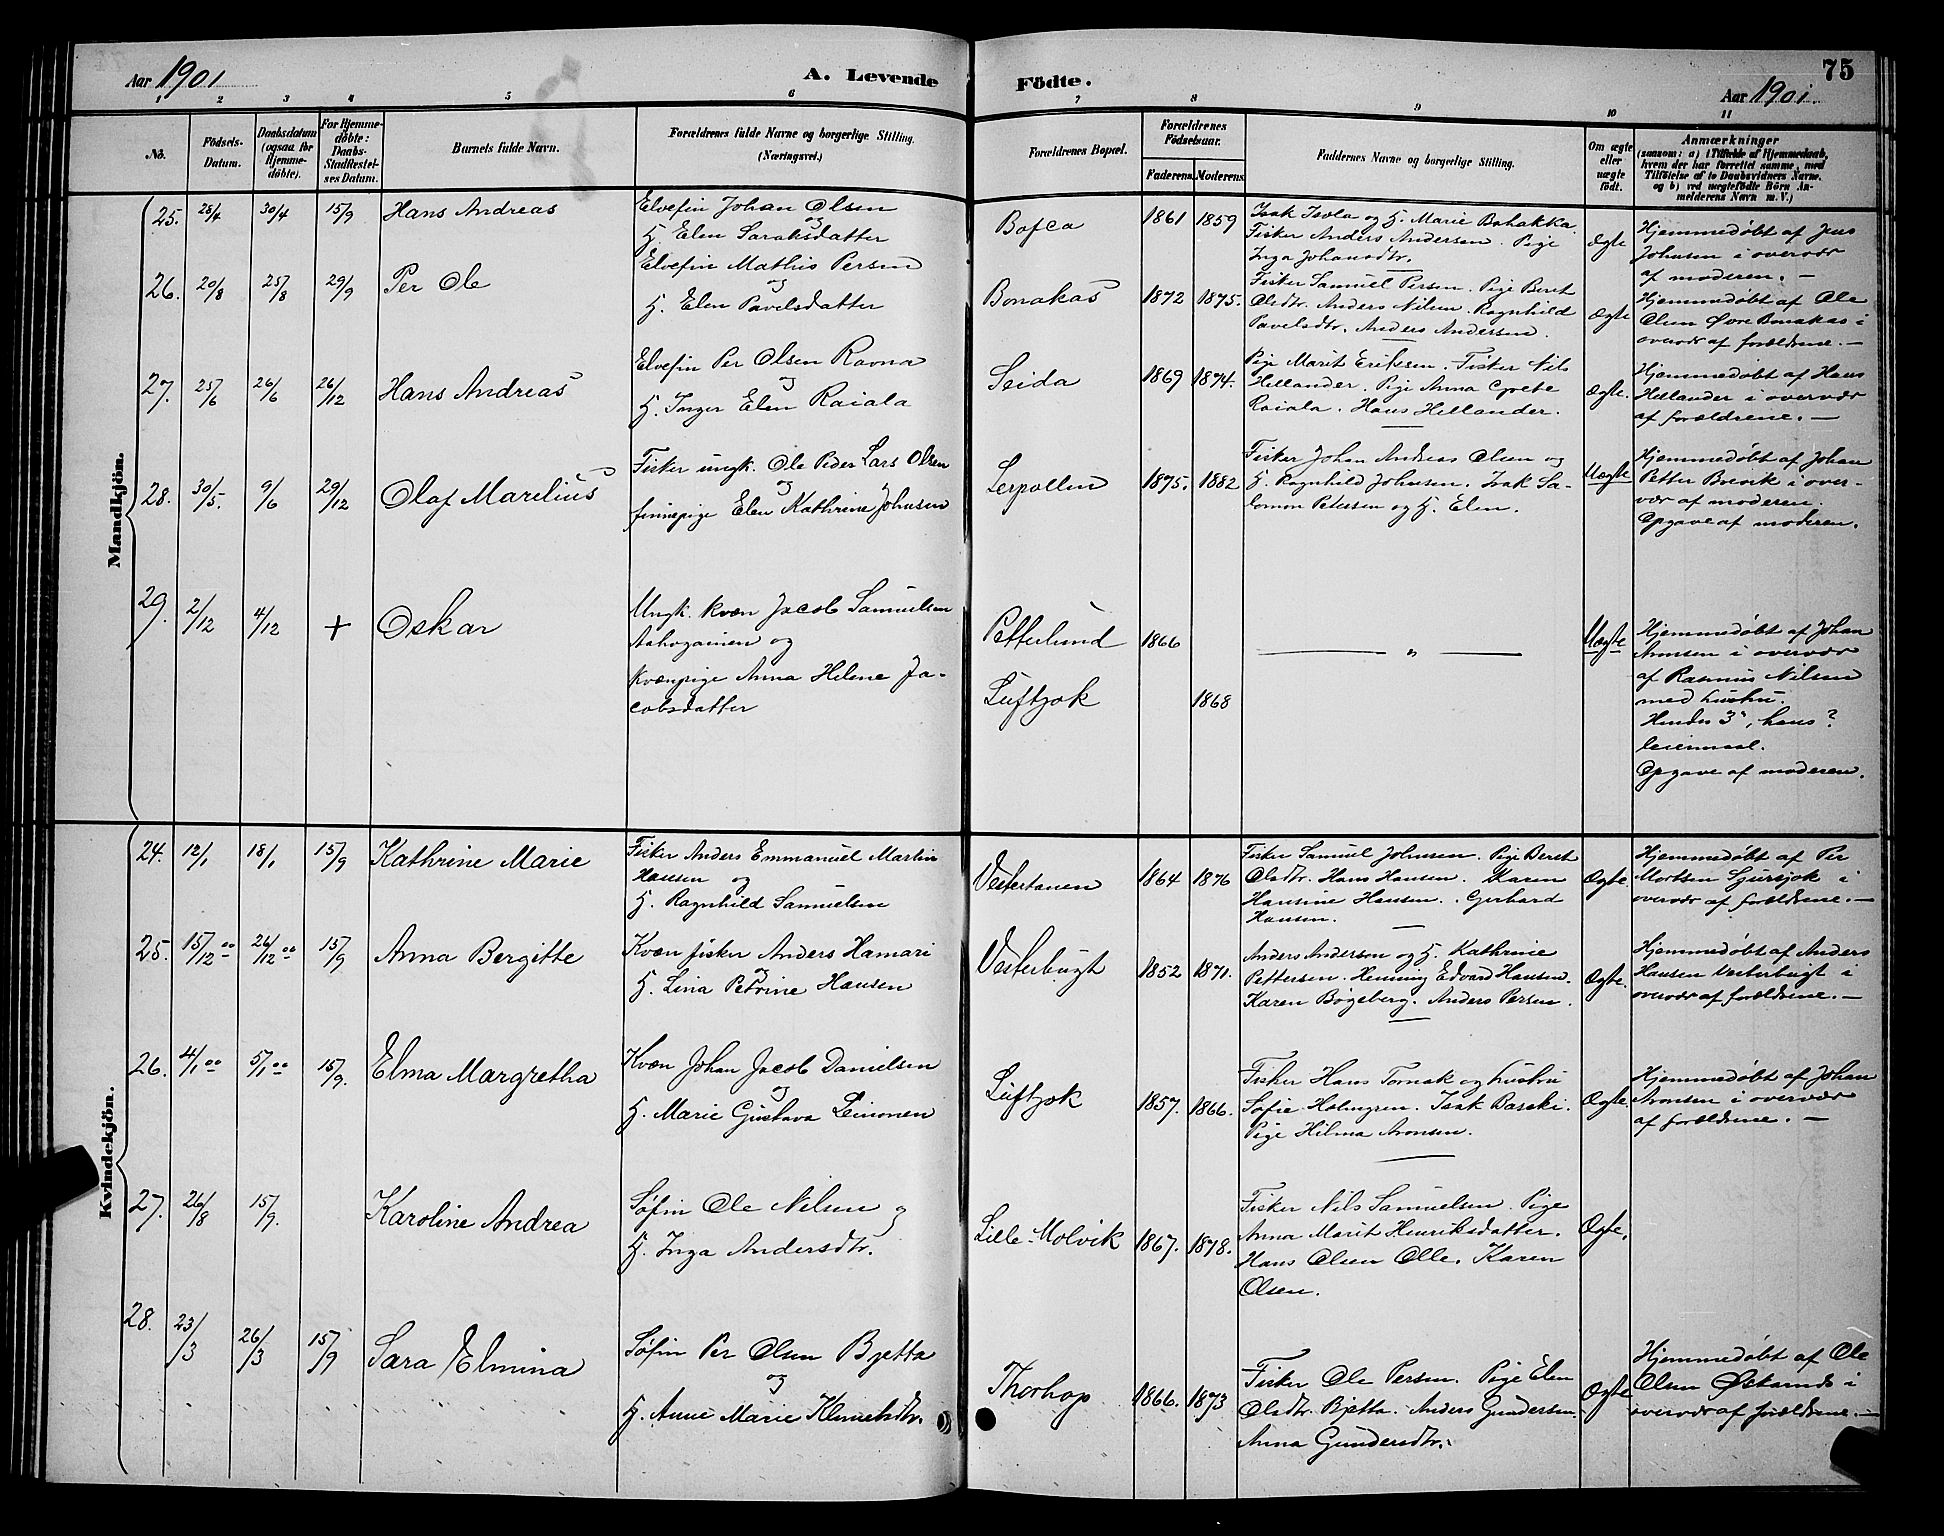 75
Aar 1901
A. Levende Födte.
Aar 1901
1 2 3 4 5 6 7 8 9 10 11
No.
Födsels-
Datum.
Daabsdatum
(ogsaa for
Hjemme-
döbte).
For Hjemme-
döbte:
Daabs-
Stadfæstel-
ses Datum.
Barnets fulde Navn.
Forældrenes fulde Navne og borgerlige Stilling.
(Næringsvei.)
Forældrenes Bopæl.
Forældrenes
Födselsaar.
Faderens. Moderens.
Faddernes Navne og borgerlige Stilling.
Om ægte
eller
uægte
födt.
Anmærkninger
(saasom: a) i Tilfælde af Hjemmedaab,
hvem der har forrettet samme, med
Tilföielse af to Daabsvidners Navne,
og b) ved uægtefödte Börn An-
melderens Navn m. V.)
Mandkjön.
25. 25/4 30/4 15/9 Hans Andreas
Elvefin Johan Olsen
og
H. Elen Saraksdatter
Bafca 1861 1859
Isak Isola og H. Marie Bohakka.
Fisker Anders Andersen. Pige
Inga Johansdtr.
Ægte
Hjemmedøbt af Jens
Johnsen i overvær
af moderen. —
26. 20/8 25/8 29/9 Per Ole
Elvefin Mathis Persen
og
H. Elen Pavelsdatter
Bonakas 1872 1875.
Fisker Samuel Persen. Pige Beret
Olsdtr. Anders Nilsen. Ragnhild
Pavelsdtr. Anders Andersen.
Ægte
Hjemmedøbt af Ole
Olsen Øvre Bonakas i
overvær af forældrene. —
27. 25/6 26/6 26/12 Hans Andreas
Elvefin Per Olsen Ravna
og
H. Inger Elen Raiala
Seida 1869 1874.
Pige Marit Eriksen. Fisker Nils
Hellander. Pige Anna Grete
Raiala. Hans Hellander.
Ægte.
Hjemmedøbt af Hans
Hellander i overvær
af forældrene. —
28. 30/5. 9/6 29/12 Olaf Marelius
Fisker ungk. Ole Peder Lars Olsen
og
finnepige Elen Kathrine Johnsen
Lerpollen 1875. 1882
Fisker Johan Andreas Olsen og
H. Ragnhild Johnsen. Isak Sa-
lomon Petersen og H. Elen.
Uægte
Hjemmedøbt af Johan
Petter Brevik i over-
vær af moderen.
Opgave af moderen.
29. 2/12 4/12 + Oskar
Ungk. kvæn Jacob Samuelsen
og
kvænpige Anna Helene Ja-
cobsdatter
Petterlund 1866
Luftjok 1868
— " —
Uægte
Hjemmedøbt af Johan
Aronsen i overvær
af Rasmus Nilsen
med hustru.
Hendes 3", hans ?
leiermaal.
Opgave af moderen.
Kvindekjön.
24. 12/1 18/1 15/9 Kathrine Marie
Fisker Anders Emmanuel Martin
Hansen og
H. Ragnhild Samuelsen
Vestertanen 1864 1876
Fisker Samuel Johnsen. Pige Beret
Olsdtr. Hans Hansen. Karen
Hansine Hansen. Gerhard
Hansen.
Ægte.
Hjemmedøbt af Per
Mortsen Sjursjok i
overvær af forældrene. —
25. 15/12 00 26/12 00 15/9 Anna Bergitte
Kvæn fisker Anders Hamari
og
H. Lina Petrine Hansen
Vesterbugt 1852 1871.
Anders Anderson og H. Kathrine
Pettersen. Henning Edvard Hansen.
Karen Bøgeberg. Anders Persen.
Ægte.
Hjemmedøbt af Anders
Hansen Vesterbugt i
overvær af forældrene. —
26. 4/1 00 5/1 00 15/9. Elma Margretha
Kvæn Johan Jacob Danielsen
og
H. Marie Gustava Leinonen
Luftjok 1857. 1866.
Fisker Hans Tornak og hustru
Sofie Holmgren. Isak Baseki.
Pige Hilma Aronsen.
Ægte.
Hjemmedøbt af Johan
Aronsen i overvær
af forældrene. —
27. 26/8 15/9. Karoline Andrea
Søfin Ole Nilsen og
H. Inga Andersdtr.
Lille-Molvik 1867. 1878.
Fisker Nils Samuelsen. Pige
Anna Marit Henriksdatter.
Hans Olsen Olle. Karen
Olsen.
Ægte.
28. 23/3 26/3 15/9 Sara Elmina
Søfin Per Olsen Bjetta
og
H. Anne Marie Klemetsdtr.
Thorhop 1866. 1873
Fisker Ole Persen. Pige Elen
Olsdtr. Bjetta. Anders Gundersen.
Anna Gundersdtr.
Ægte
Hjemmedøbt af Ole
Olsen i
overvær af forældrene. —